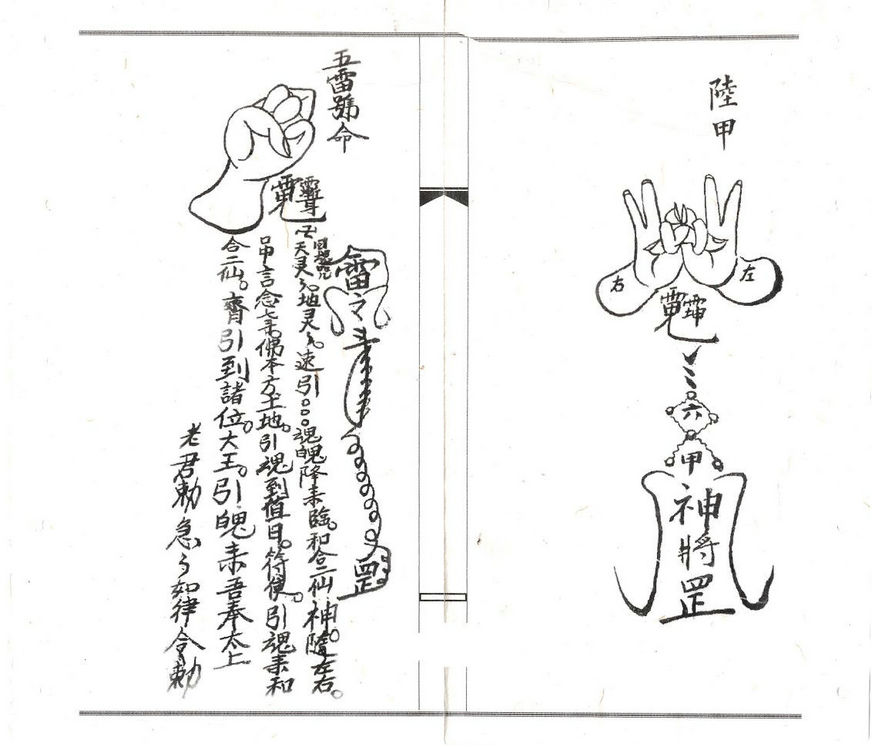 陸甲
右
左
六
甲
神將罡
五雷號命
雷令
罡
天灵灵地灵灵速引。。。魂魄降来臨。和合二仙神。隨左右。
吊言念七来佛本方土地。引魂到值日。符使。引魂来和
合二仙。齊引到諸位。大王。引魄来吾奉太上
老君勅急急如律令勅